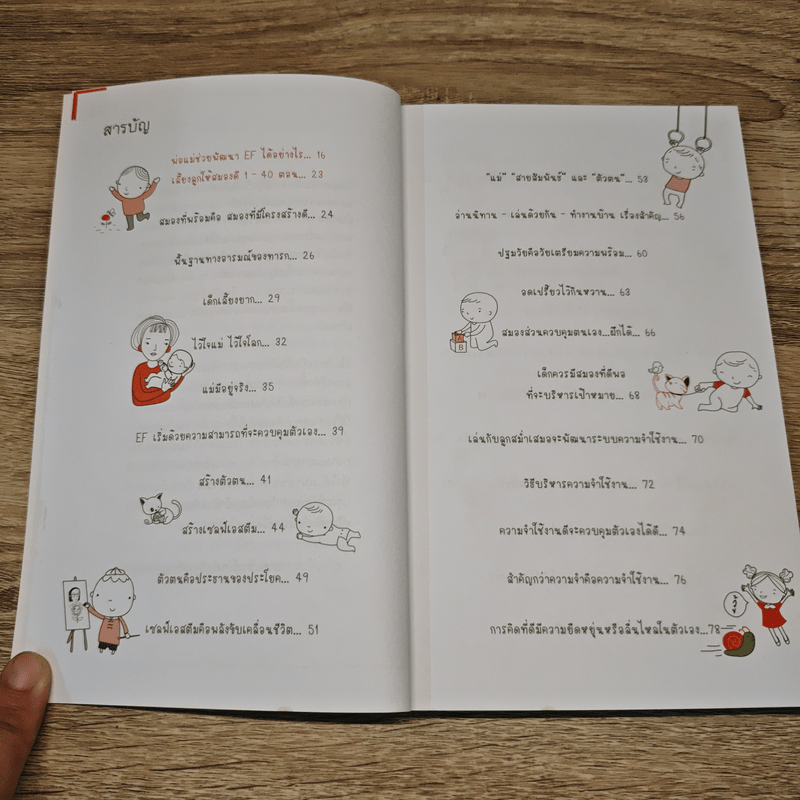 สารบัญ
พ่อแม่ช่วยพัฒนา EF ได้อย่างไร... 16
เลี้ยงลูกให้สมองดี 1 - 40 ตอน... 23
สมองที่พร้อมคือ สมองที่มีโครงสร้างดี... 24
พื้นฐานทางอารมณ์ของทารก... 26
เด็กเลี้ยงยาก... 29
ไว้ใจแม่ ไว้ใจโลก... 32
แม่มีอยู่จริง... 35
EF เริ่มด้วยความสามารถที่จะควบคุมตัวเอง... 39
สร้างตัวตน... 41
สร้างเซลฟ์เอสตีม... 44
ตัวตนคือประธานของประโยค... 49
เซลฟ์เอสตีมคือพลังขับเคลื่อนชีวิต... 51
"แม่" "สายสัมพันธ์" และ "ตัวตน"... 53
อ่านนิทาน - เล่นด้วยกัน - ทำงานบ้าน เรื่องสำคัญ... 56
ปฐมวัยคือวัยเตรียมความพร้อม... 60
อดเปรี้ยวไว้กินหวาน... 63
สมองส่วนควบคุมตนเอง...ฝึกได้... 66
A
B
เด็กควรมีสมองที่ดีพอ
ที่จะบริหารเป้าหมาย... 68
เล่นกับลูกสม่ำเสมอจะพัฒนาระบบความจำใช้งาน... 70
วิธีบริหารความจำใช้งาน... 72
ความจำใช้งานดีจะควบคุมตัวเองได้ดี... 74
สำคัญกว่าความจำคือความจำใช้งาน... 76
การคิดที่ดีมีความยืดหยุ่นหรือลื่นไหลในตัวเอง...78